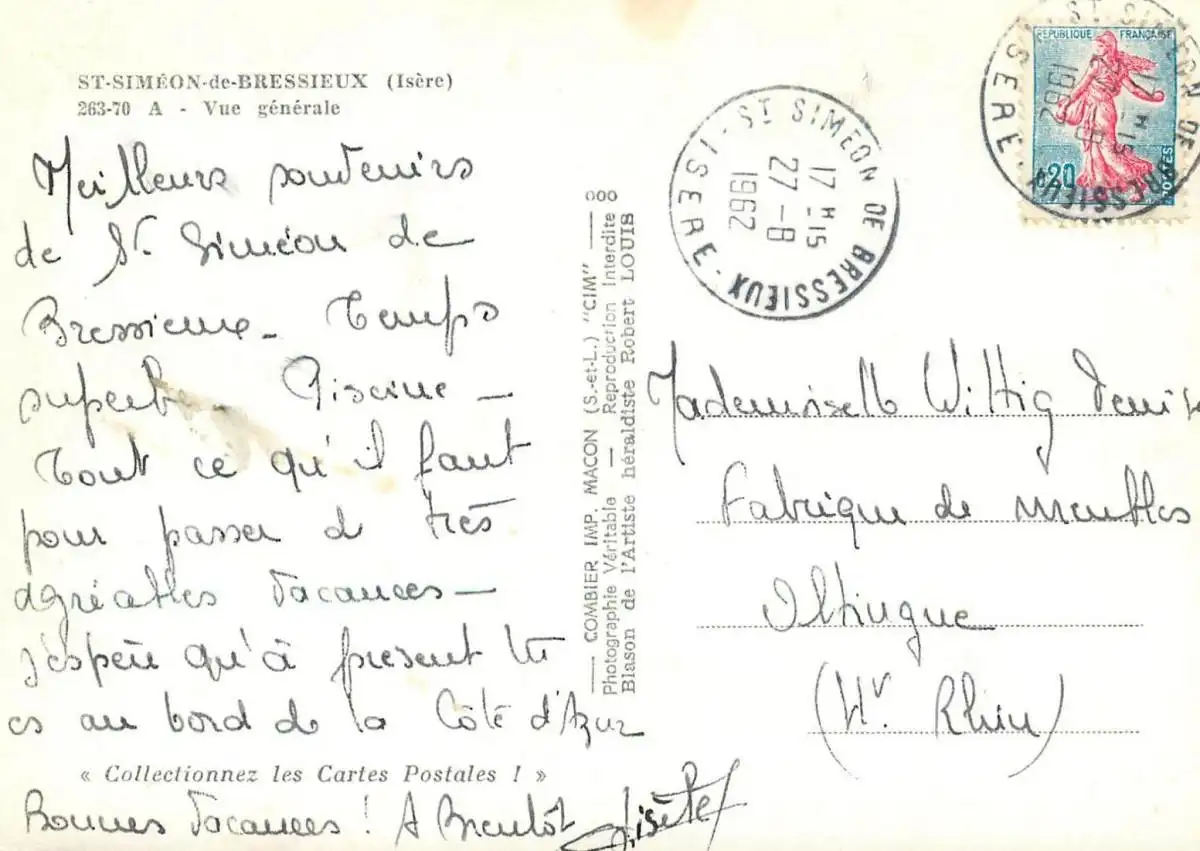 ST-SIMÉON-de-BRESSIEUX (Isère)
263-70 A - Vue générale
Meilleurs souvenirs
de St Siméon de
Bressieux - Temps
superbe - Piscine -
Tout ce qu'il faut
pour passer de très
agréables vacances -
J'espère qu'à présent tu
es au bord de la Côte d'Azur
« Collectionnez les Cartes Postales ! »
Bonnes vacances ! A Bientôt
COMBIER IMP. MACON (S.-et-L.) "CIM"
Photographie Véritable — Reproduction Interdite
Blason de l'Artiste héraldiste Robert LOUIS
ST SIMEON DE BRESSIEUX - ISERE
17 H 15
27 - 8
1962
REPUBLIQUE FRANÇAISE
0,20
POSTES
ST SIMEON DE BRESSIEUX
ISERE
17 H 15
1962
Mademoiselle Wittig Denise
Fabrique de meubles
Oltingue
(Ht Rhin)